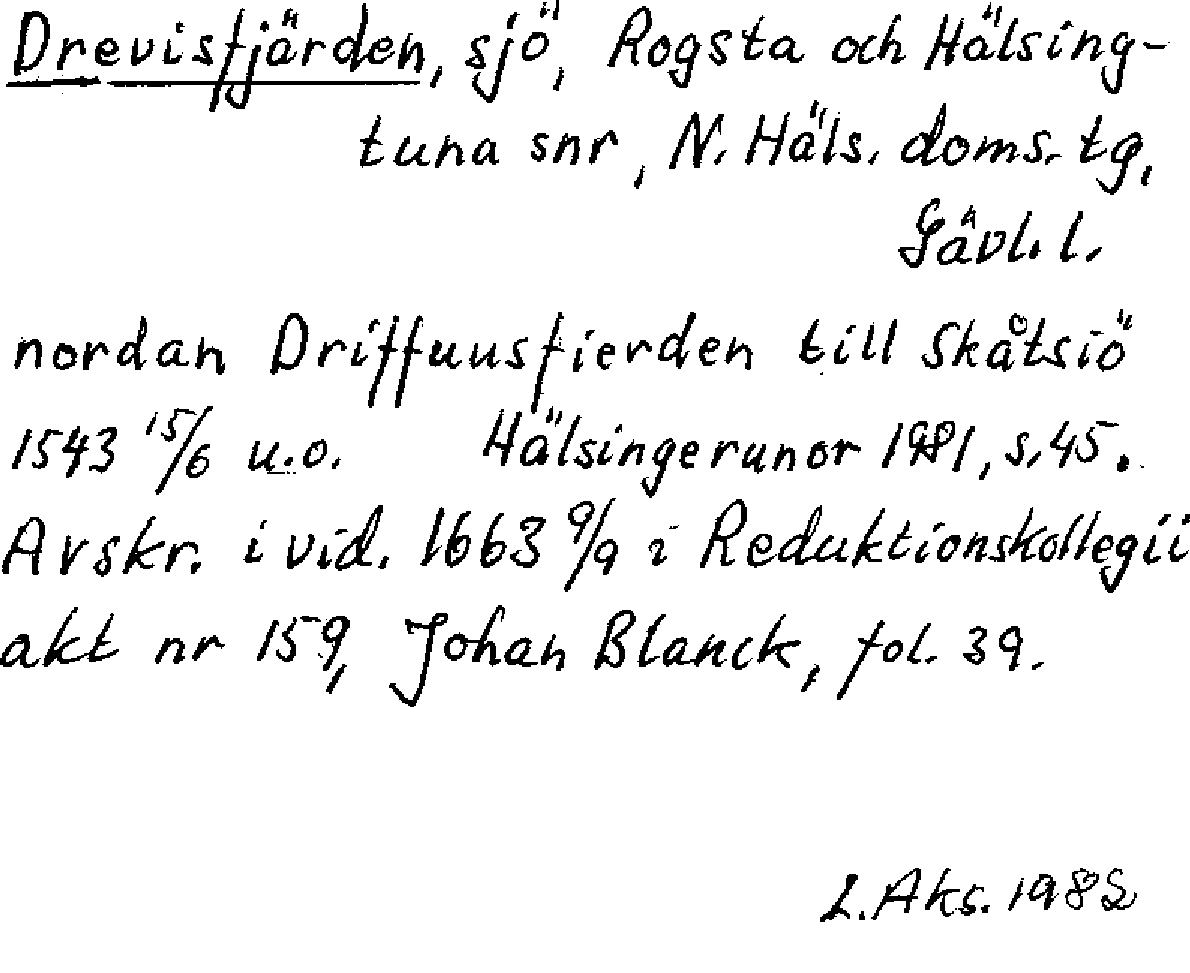 Drevisfjärden, sjö, Rogsta och Hälsing-
tuna snr, N. Häls. doms. tg,
Gävl. l.
nordan Driffuusfierden till Skåtsiö
1543 15/6 u.o. Hälsingerunor 1981, s. 45.
Avskr. i vid. 1663 9/9 i Reduktionskollegii
akt nr 159, Johan Blanck, fol. 39.
L. Aks. 1982